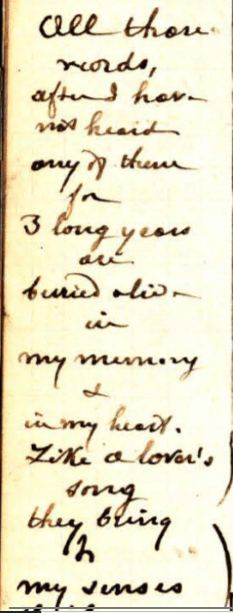 All those
words,
after I have
not heard
any of them
for
3 long years
are
buried alive
in
my memory
&
in my heart.
Like a lover's
song
they bring
to
my senses